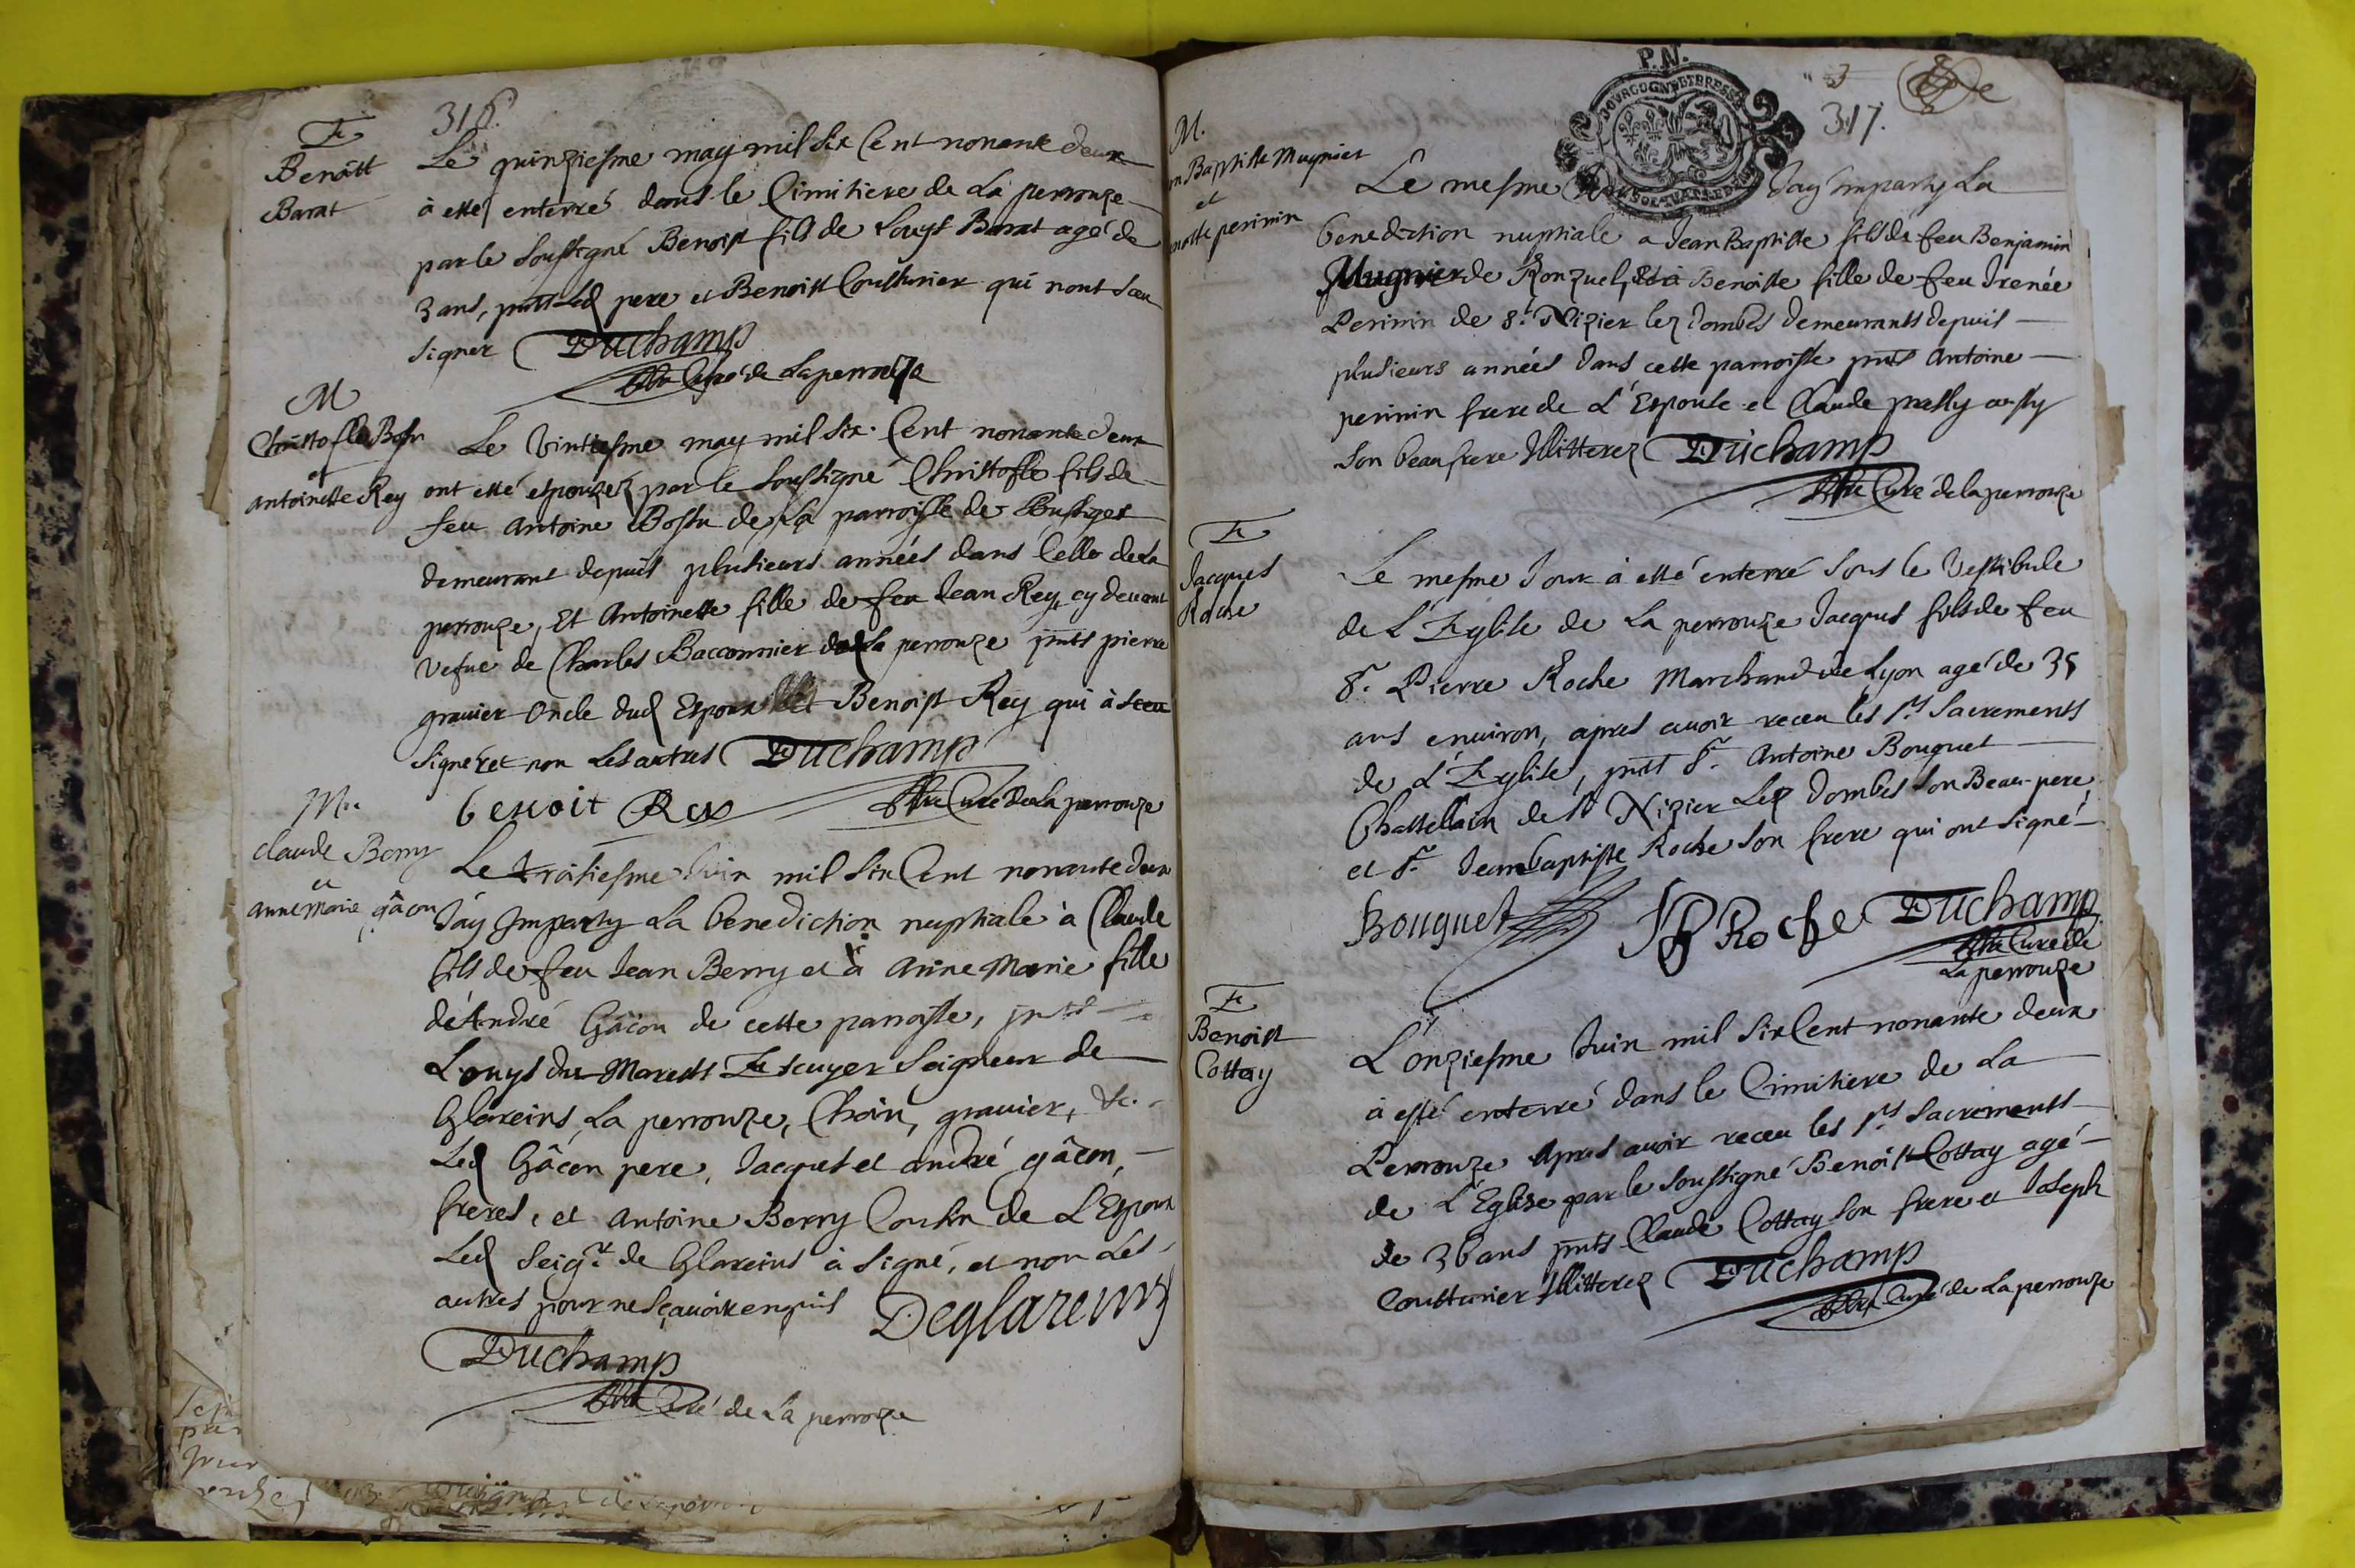 316.
Benoitt
Barat
Le quinziesme may mil six Cent nonente deux
à esté enterré dans le Cimitiere de La perrouze
par le soussigné Benoist fils de Louys Barat agé de
3 ans, pnts Led pere et Benoist Cousturier qui nont sceu
signer Duchamp
Curé de Laperrouze
M
Christofle Bossu
et
antoinette Rey
Le Vintiesme may mil six Cent nonante deux
ont esté espousez par le soussigné Christofle fils de
feu Antoine Bossu de La parroisse de Bussiges
demeurant depuis plusieurs années dans Celle de La
perrouze, Et Antoinette fille de feu Jean Rey, cy devant
vefue de Charles Bacconnier de La perrouze pnts pierre
gravier oncle dud Espoux et Benoist Rey qui à sceu
signer et non Les autres Duchamp
benoit Rey Curé de La perrouze
claude Berry
et
anne Marie gâcon
Le troisiesme Juin mil six Cent nonante deux
J'ay Imparty La benediction nuptiale à Claude
fils de feu Jean Berry et à Anne Marie fille
d'André Gâcon de cette parroisse, pnts
Louys du Marest Escuyer Seigneur de
Glareins, La perrouze, Choin, gravier, &c.
Led Gâcon pere, Jacques et andré gâcon,
freres, et Antoine Berry Cousin de L'Espoux
Led Seigr. de Glareins à signé, et non Les
autres pour ne sçavoir enquis Deglareins
Duchamp
Curé de La perrouze
P.N.
BOURGOGNE ET BRESSE
3
317.
M.
Baptiste Mugnier
et
perinin
Le mesme Jay Imparty La
benediction nuptiale a Jean Baptiste fils de feu Benjamin
Mugnier de Ronzuel, et à Benoiste fille de feu Irenée
Perinin de St. Nizier lez Dombes demeurants depuis
plusieurs années dans cette parroisse pnts Antoine
perinin frere de L'Espouse et Claude
son beaufrere Illitterez Duchamp
Curé de la perrouze
Jacques
Roche
Le mesme Jour à esté enterré sous le Vestibule
de L'Eglise de La perrouze Jacques fils de feu
Sr. Pierre Roche Marchand de Lyon agé de 35
ans environ, apres avoir receu les Sts Sacrements
de L'Eglise, pnts Sr. Antoine Bouquet
Chastellain de St Nizier Lez Dombes son Beau-pere,
et Sr. Jean baptiste Roche son frere qui ont signé
Bouquet JB Roche Duchamp
Curé de
La perrouze
Benoist
Cottay
L'onziesme Juin mil six Cent nonante deux
à esté enterré dans le Cimitiere de La
Perrouze Apres avoir receu les Sts Sacrements
de L'Eglise par le soussigné Benoist Cottay agé
de 36 ans pnts Claude Cottay son frere et Joseph
Cousturier Illitterez Duchamp
Curé de La perrouze